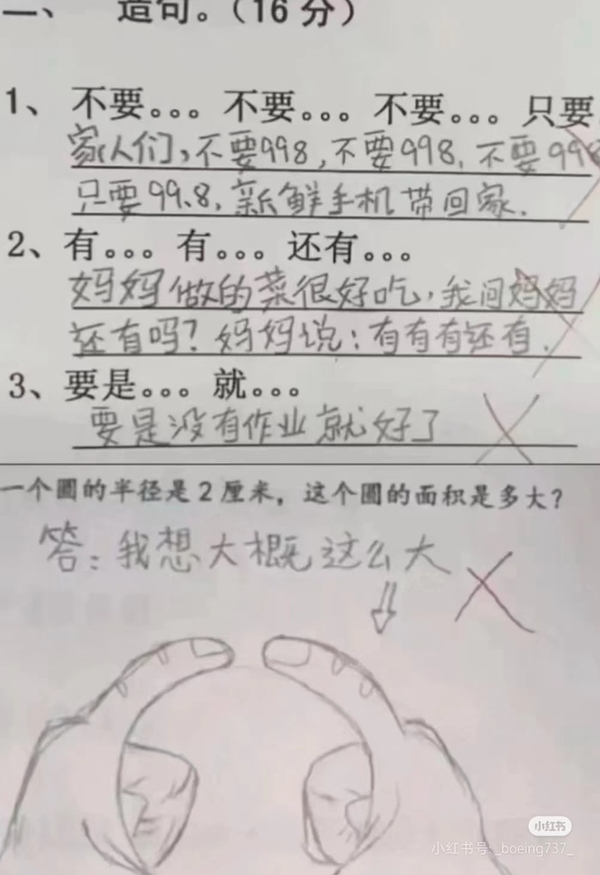 二、 造句。(16分)
1、不要。。。不要。。。不要。。。只要
家人们,不要998,不要998,不要998
只要99.8,新鲜手机带回家.
2、有。。。有。。。还有。。。
妈妈做的菜很好吃,我问妈妈
还有吗?妈妈说:有有有还有.
3、要是。。。就。。。
要是没有作业就好了
一个圆的半径是2厘米,这个圆的面积是多大?
答:我想大概这么大
小红书
小红书号:_boeing737_